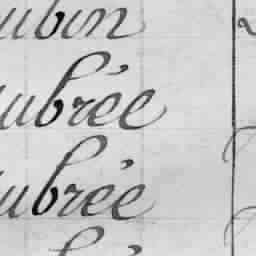 ubin
ubrée
ubrée